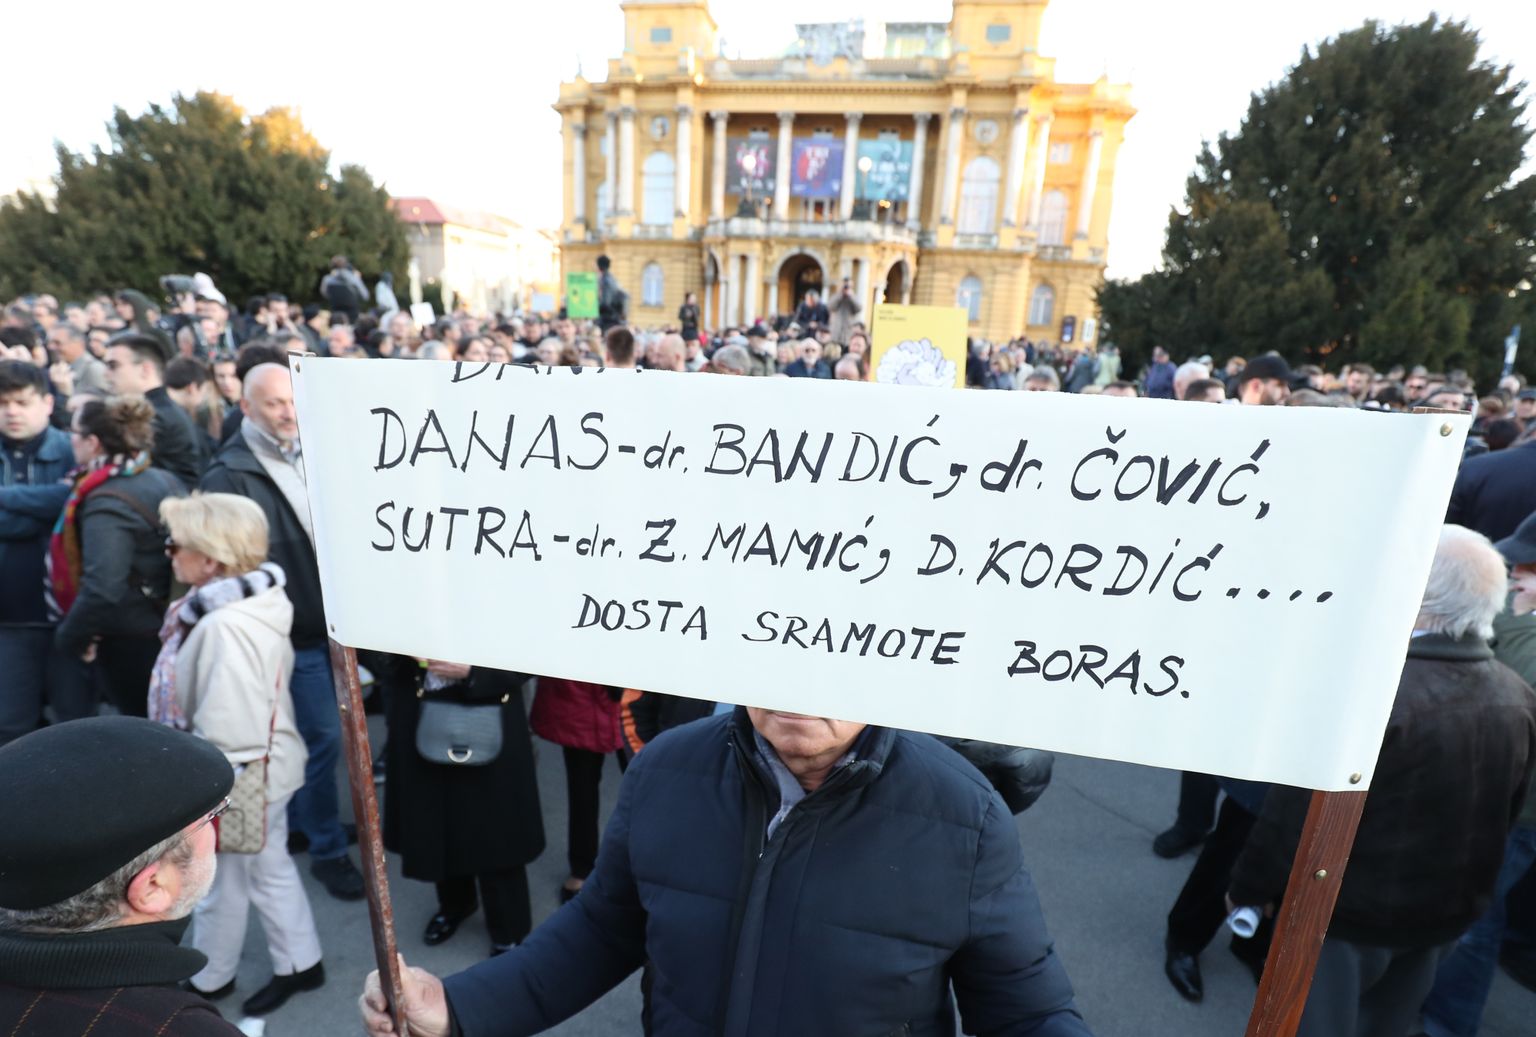 DANAS-dr. BANDIĆ, dr. ČOVIĆ,
SUTRA-dr. Z. MAMIĆ, D. KORDIĆ....
DOSTA SRAMOTE BORAS.